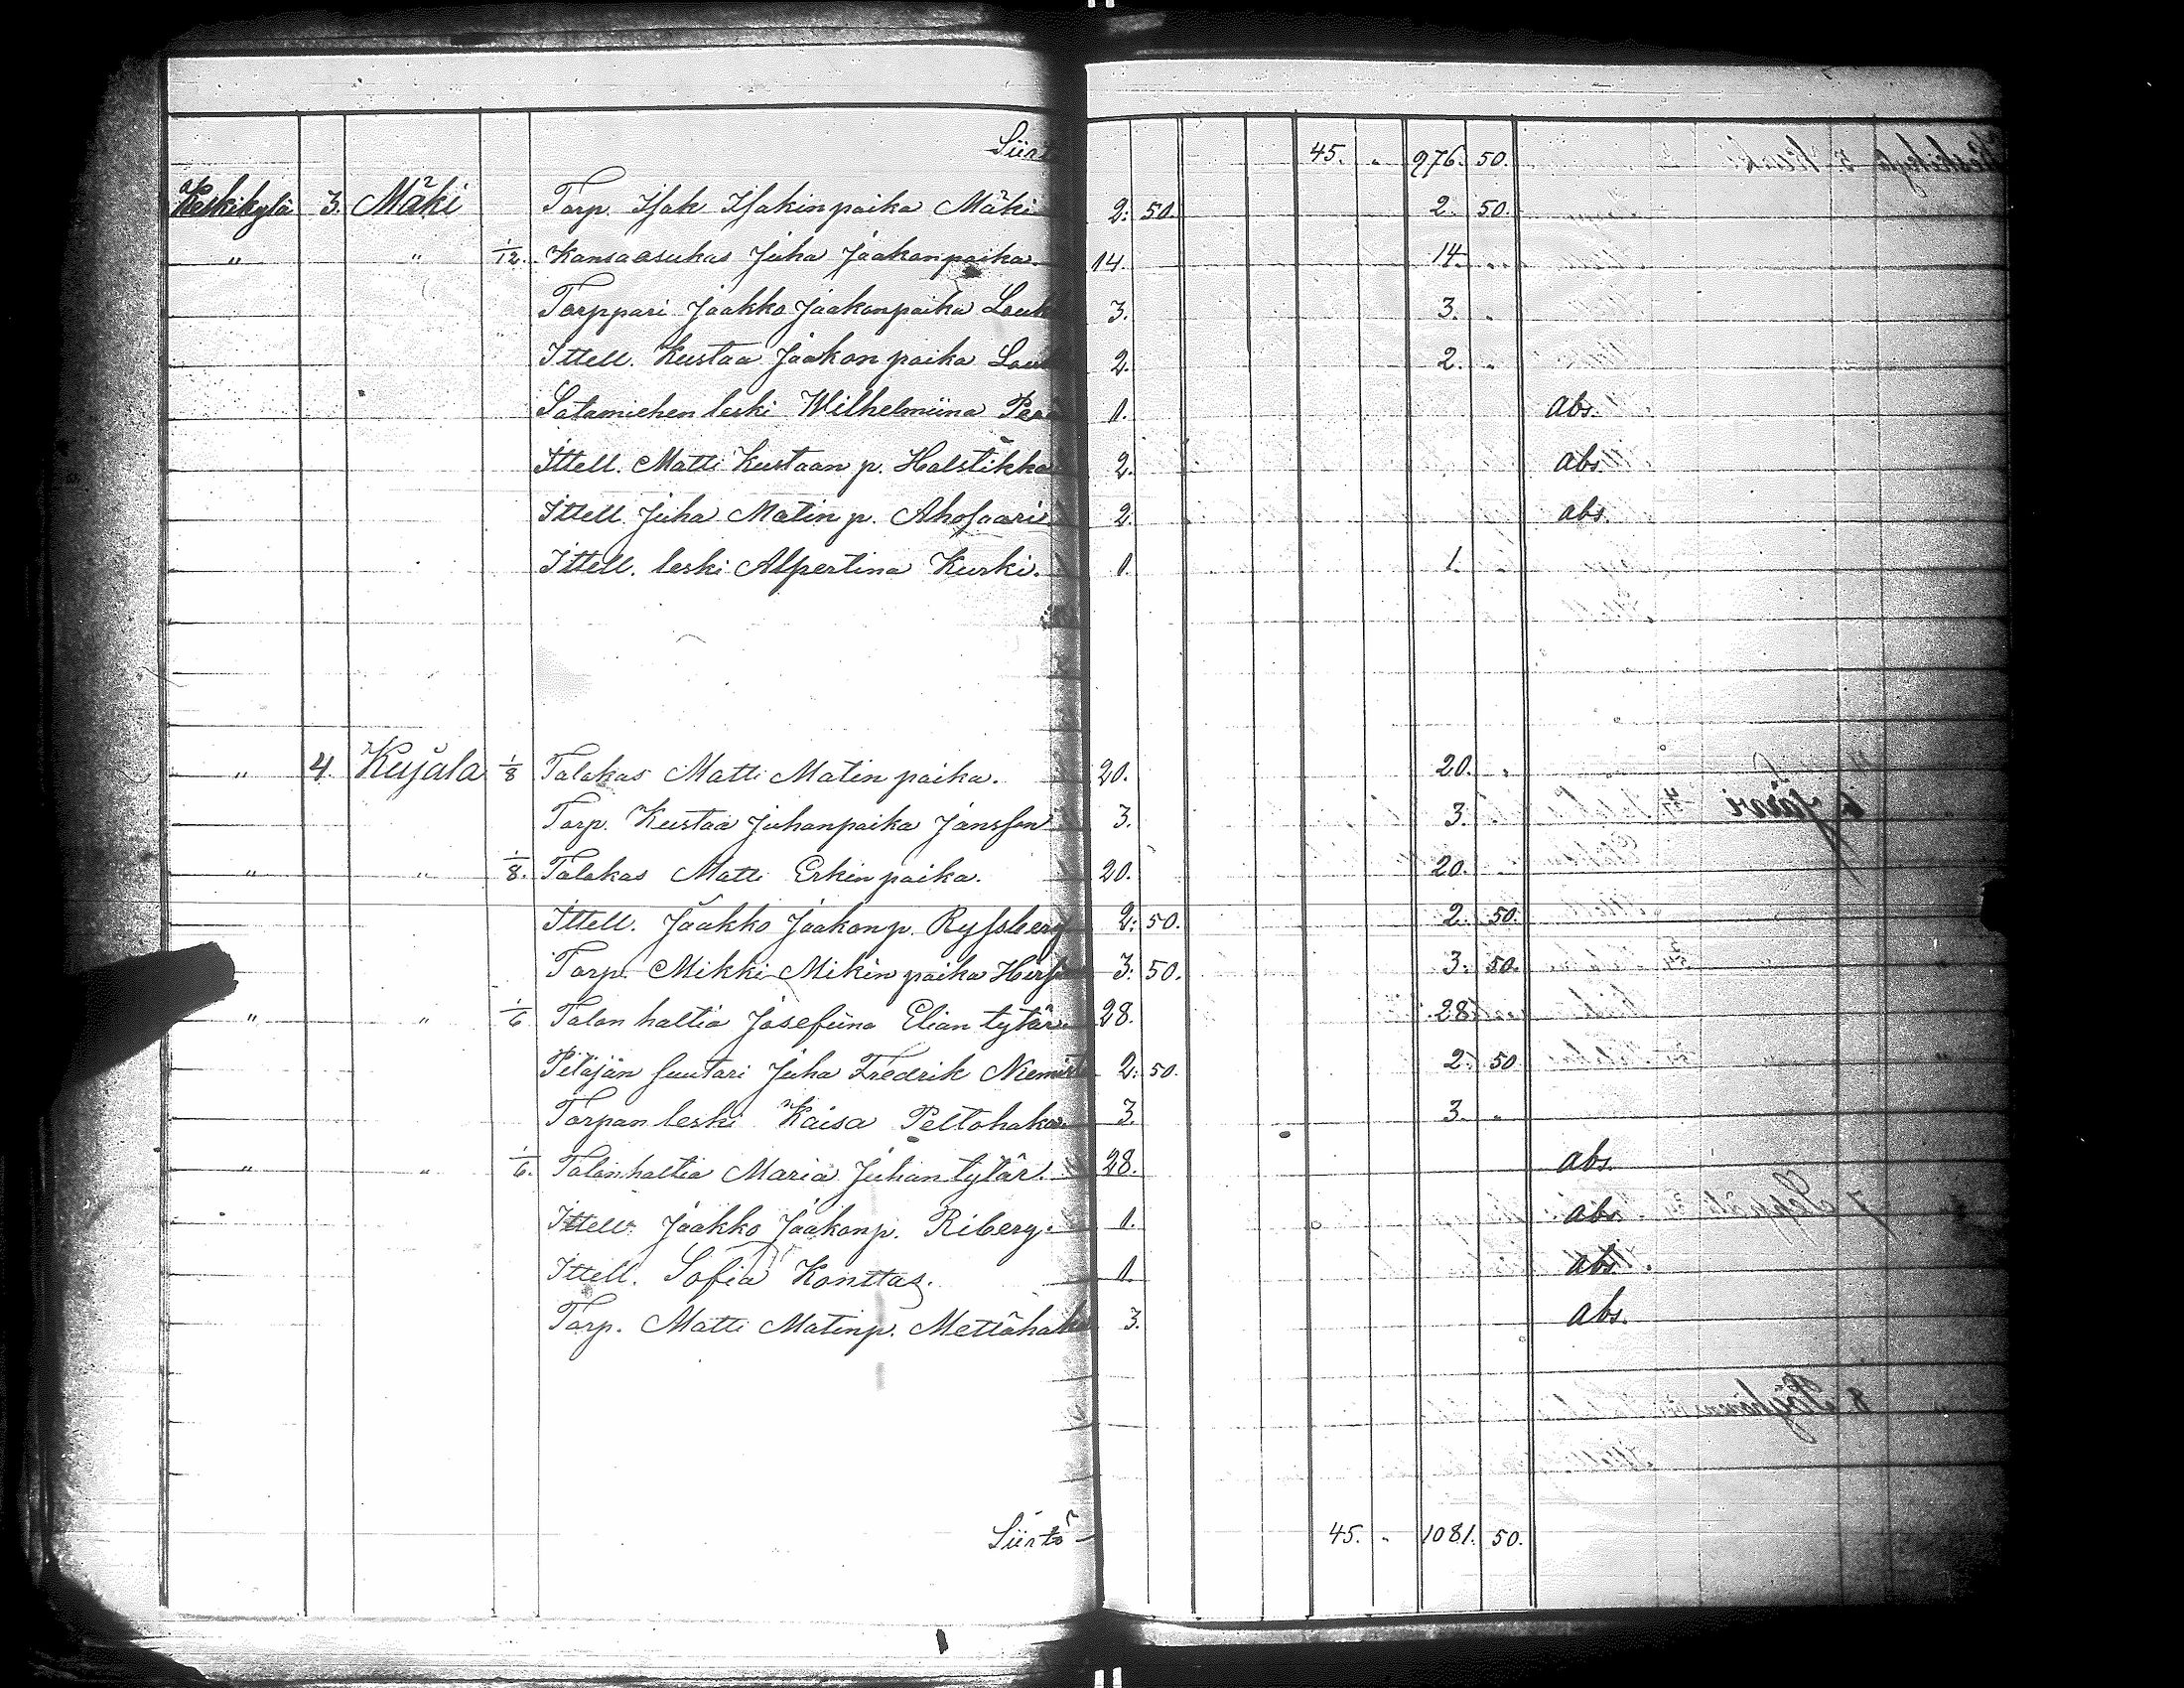 45. " 976. 50.
Keskikylä 3. Mäki Torp. Isak Isakinpoika Mäki 2: 50 2. 50.
" " 1/12. Kansaasukas Juha Jaakonpoika. 14. 14. "
Torppari Jaakko Jaakonpoika 3. 3. "
Ittell. Kustaa Jaakonpoika 2. 2. "
Sotamiehen leski Wilhelmiina 1. abs.
Ittell. Matti Kustaan p. Holstikka 2. abs.
Ittell. Juha Matin p. Ahosaari 2. abs.
Ittell. leski Alpertina Kurki. 1. 1. "
" 4. Kujala 1/8 Talokas Matti Matin poika. 20. 20. "
Torp. Kustaa Juhanpoika Jansson 3. 3. "
" " 1/8. Talokas Matti Erkin poika. 20. 20. "
Ittell. Jaakko Jaakonp. Ryssberg 2: 50. 2. 50.
Torp. Mikki Mikin poika 3: 50. 3. 50.
" " 1/6 Talon haltia Josefiina Elian tytär. 28. 28. "
Pitäjän suutari Juha Fredrik 2: 50. 2. 50
Torpan leski Kaisa Peltohaka. 3. 3. "
" " 1/6. Talonhaltia Maria Juhan tytär. 28. abs.
Ittell. Jaakko Jaakonp. Riberg. 1. abs.
Ittell. Sofia Konttas. 1. abs.
Torp. Matti Matinp. Mettähaka 3. abs.
Siirto 45. " 1081. 50.